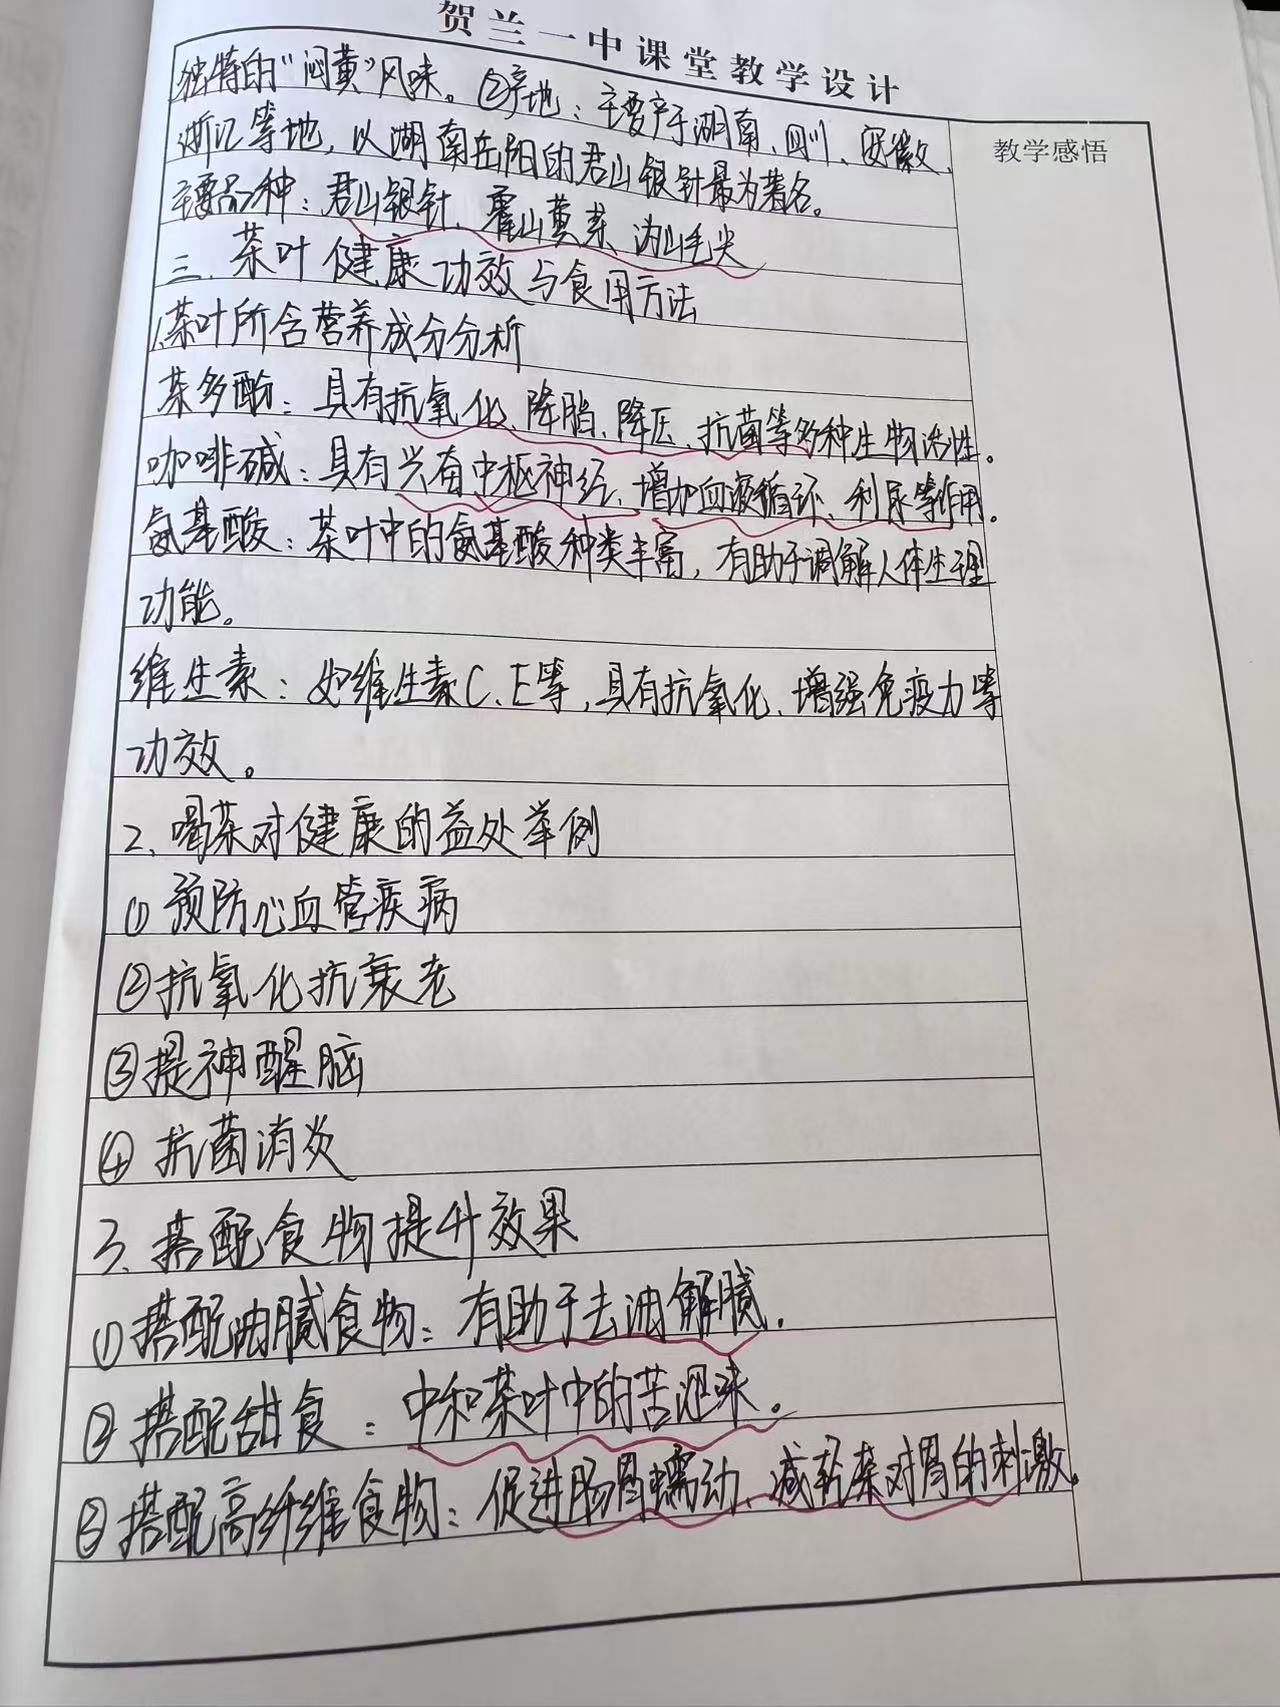 贺兰一中课堂教学设计
教学感悟
独特的“闷黄”风味。②产地：主要产于湖南、四川、安徽、
浙江等地，以湖南岳阳的君山银针最为著名。
主要品种：君山银针、霍山黄芽、沩山毛尖
三、茶叶健康功效与食用方法
1、茶叶所含营养成分分析
茶多酚：具有抗氧化、降脂、降压、抗菌等多种生物活性。
咖啡碱：具有兴奋中枢神经、增加血液循环、利尿等作用。
氨基酸：茶叶中的氨基酸种类丰富，有助于调解人体生理
功能。
维生素：如维生素C、E等，具有抗氧化、增强免疫力等
功效。
2、喝茶对健康的益处举例
①预防心血管疾病
②抗氧化抗衰老
③提神醒脑
④抗菌消炎
3、搭配食物提升效果
①搭配油腻食物：有助于去油解腻.
②搭配甜食：中和茶叶中的苦涩味。
③搭配高纤维食物：促进肠胃蠕动、减轻茶对胃的刺激。